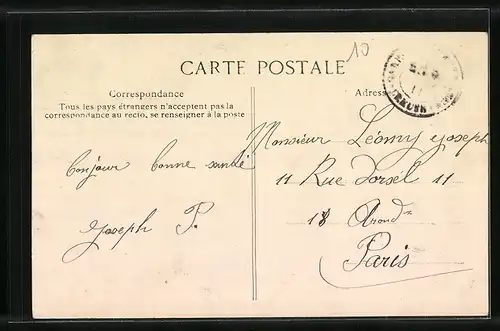 10
CARTE POSTALE
Correspondance
Tous les pays étrangers n'acceptent pas la
correspondance au recto, se renseigner à la poste
Bonjour bonne santé
Joseph P.
Adresse
Monsieur Léomy Joseph
11 Rue Dorsel 11
18 Arond
Paris